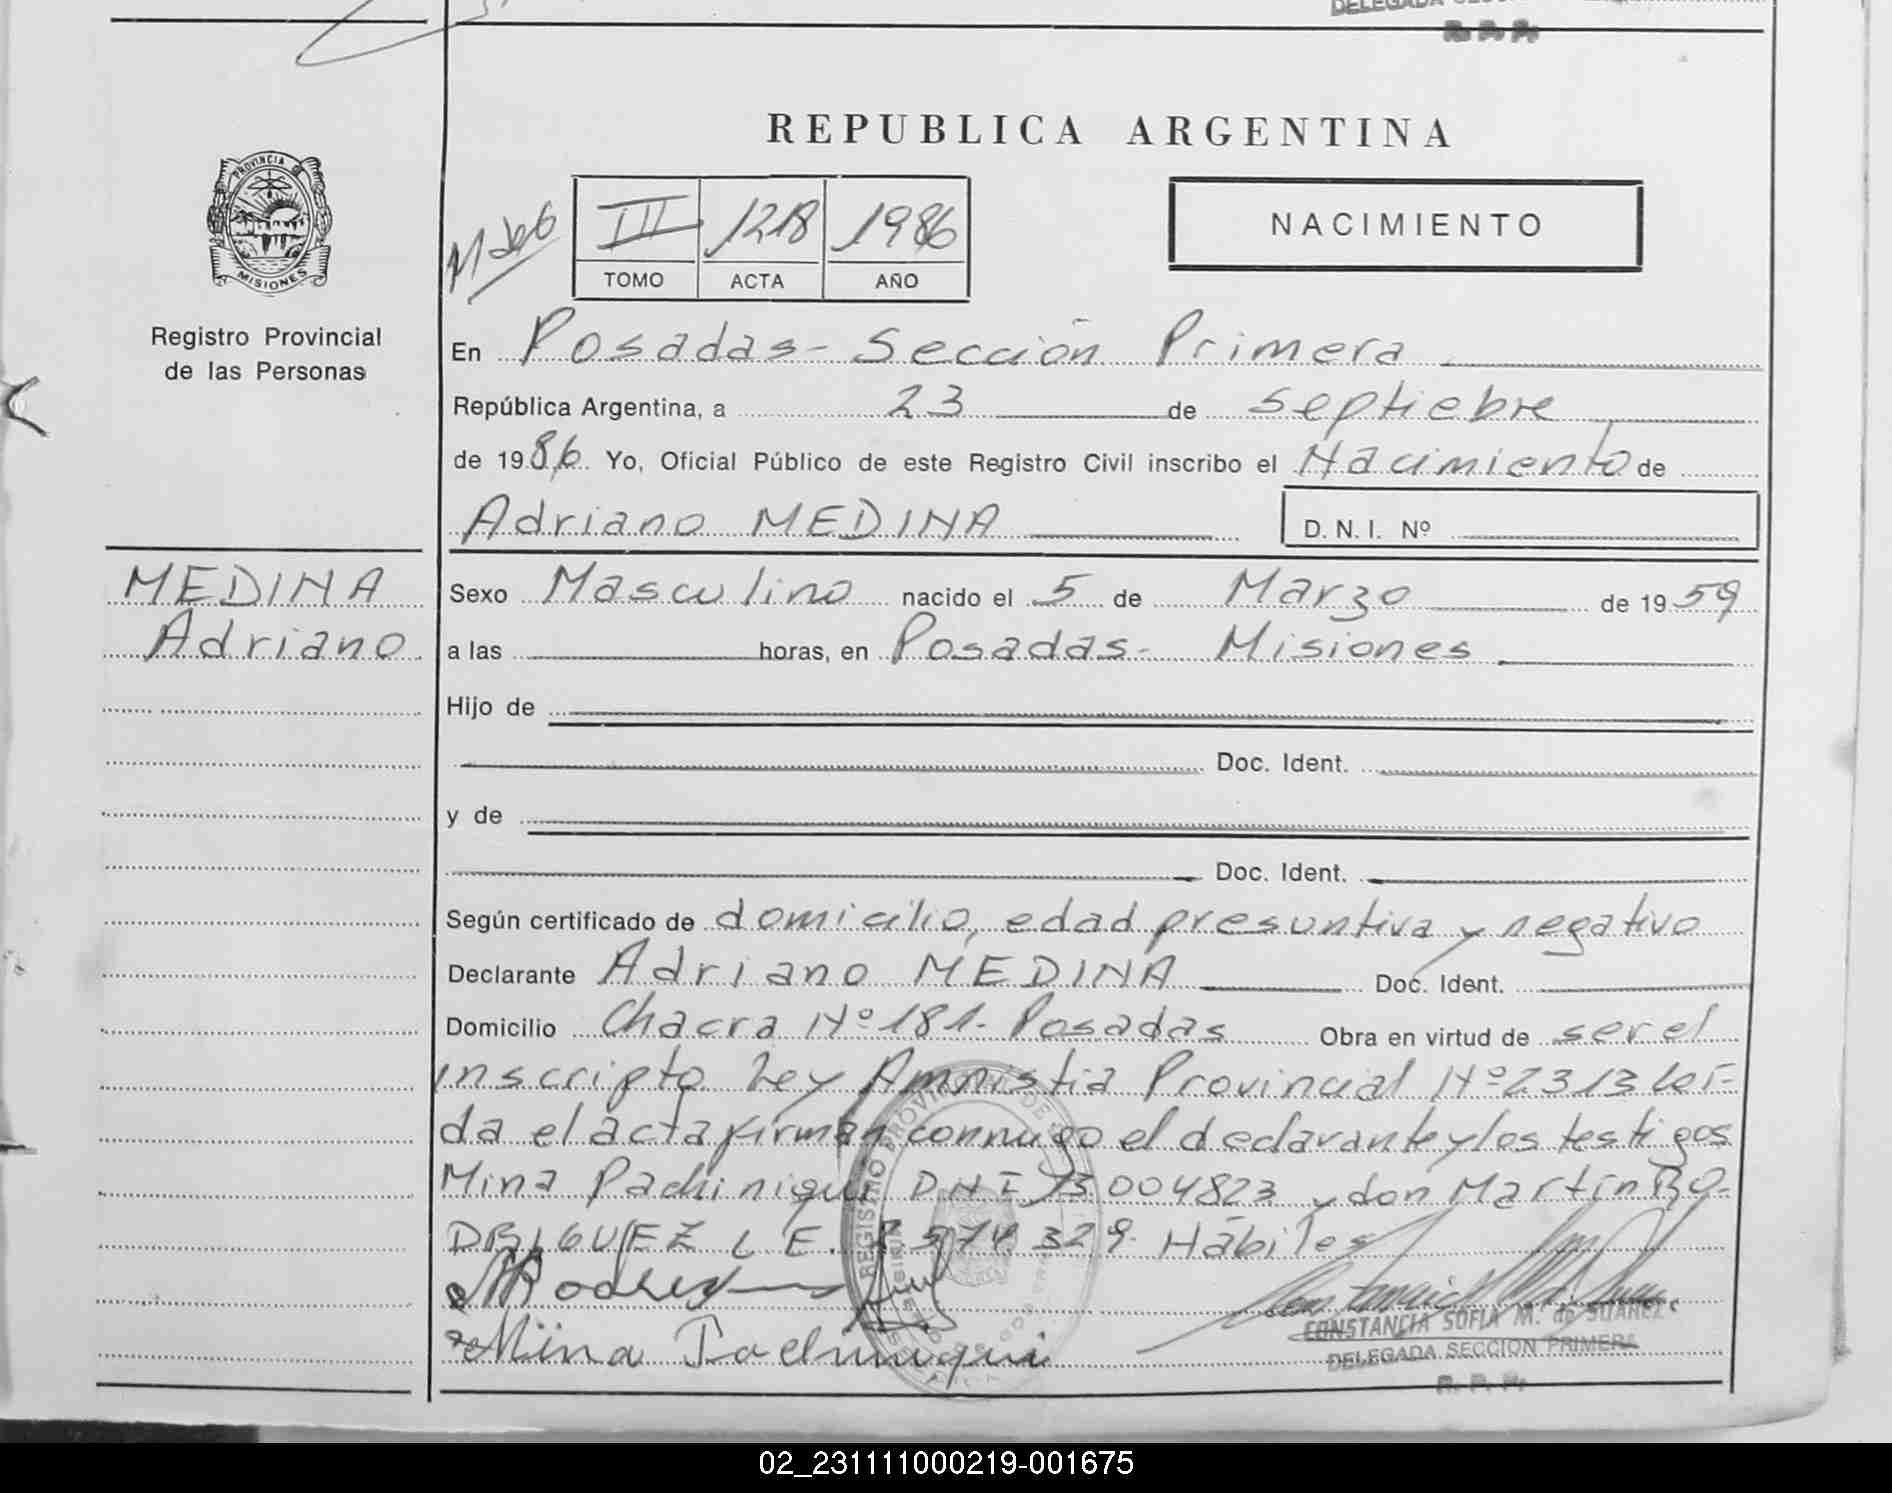 DELEGADA
R. P. P.
REPUBLICA ARGENTINA
PROVINCIA DE
MISIONES
III 1218 1986
TOMO ACTA AÑO
NACIMIENTO
Registro Provincial
de las Personas
En Posadas - Sección Primera
República Argentina, a 23 de septiebre
de 1986. Yo, Oficial Público de este Registro Civil inscribo el Nacimiento de
Adriano MEDINA D. N. I. Nº
MEDINA
Adriano
Sexo Masculino nacido el 5 de Marzo de 1959
a las horas, en Posadas - Misiones
Hijo de
Doc. Ident.
y de
Doc. Ident.
Según certificado de domicilio, edad presuntiva y negativo
Declarante Adriano MEDINA Doc. Ident.
Domicilio Chacra Nº 181. Posadas Obra en virtud de ser el
inscripto Ley Amnistia Provincial Nº 2313 Leí-
da el acta firman conmigo el declarante y los testigos
Mina Pachiniqui D.N.I 13.004823 y don Martín RO-
DRIGUEZ L E. 574.329. Hábiles
Mina Pachiniqui
CONSTANCIA SOFIA M. de SUAREZ
DELEGADA SECCION PRIMERA
R. P. P.
02_231111000219-001675